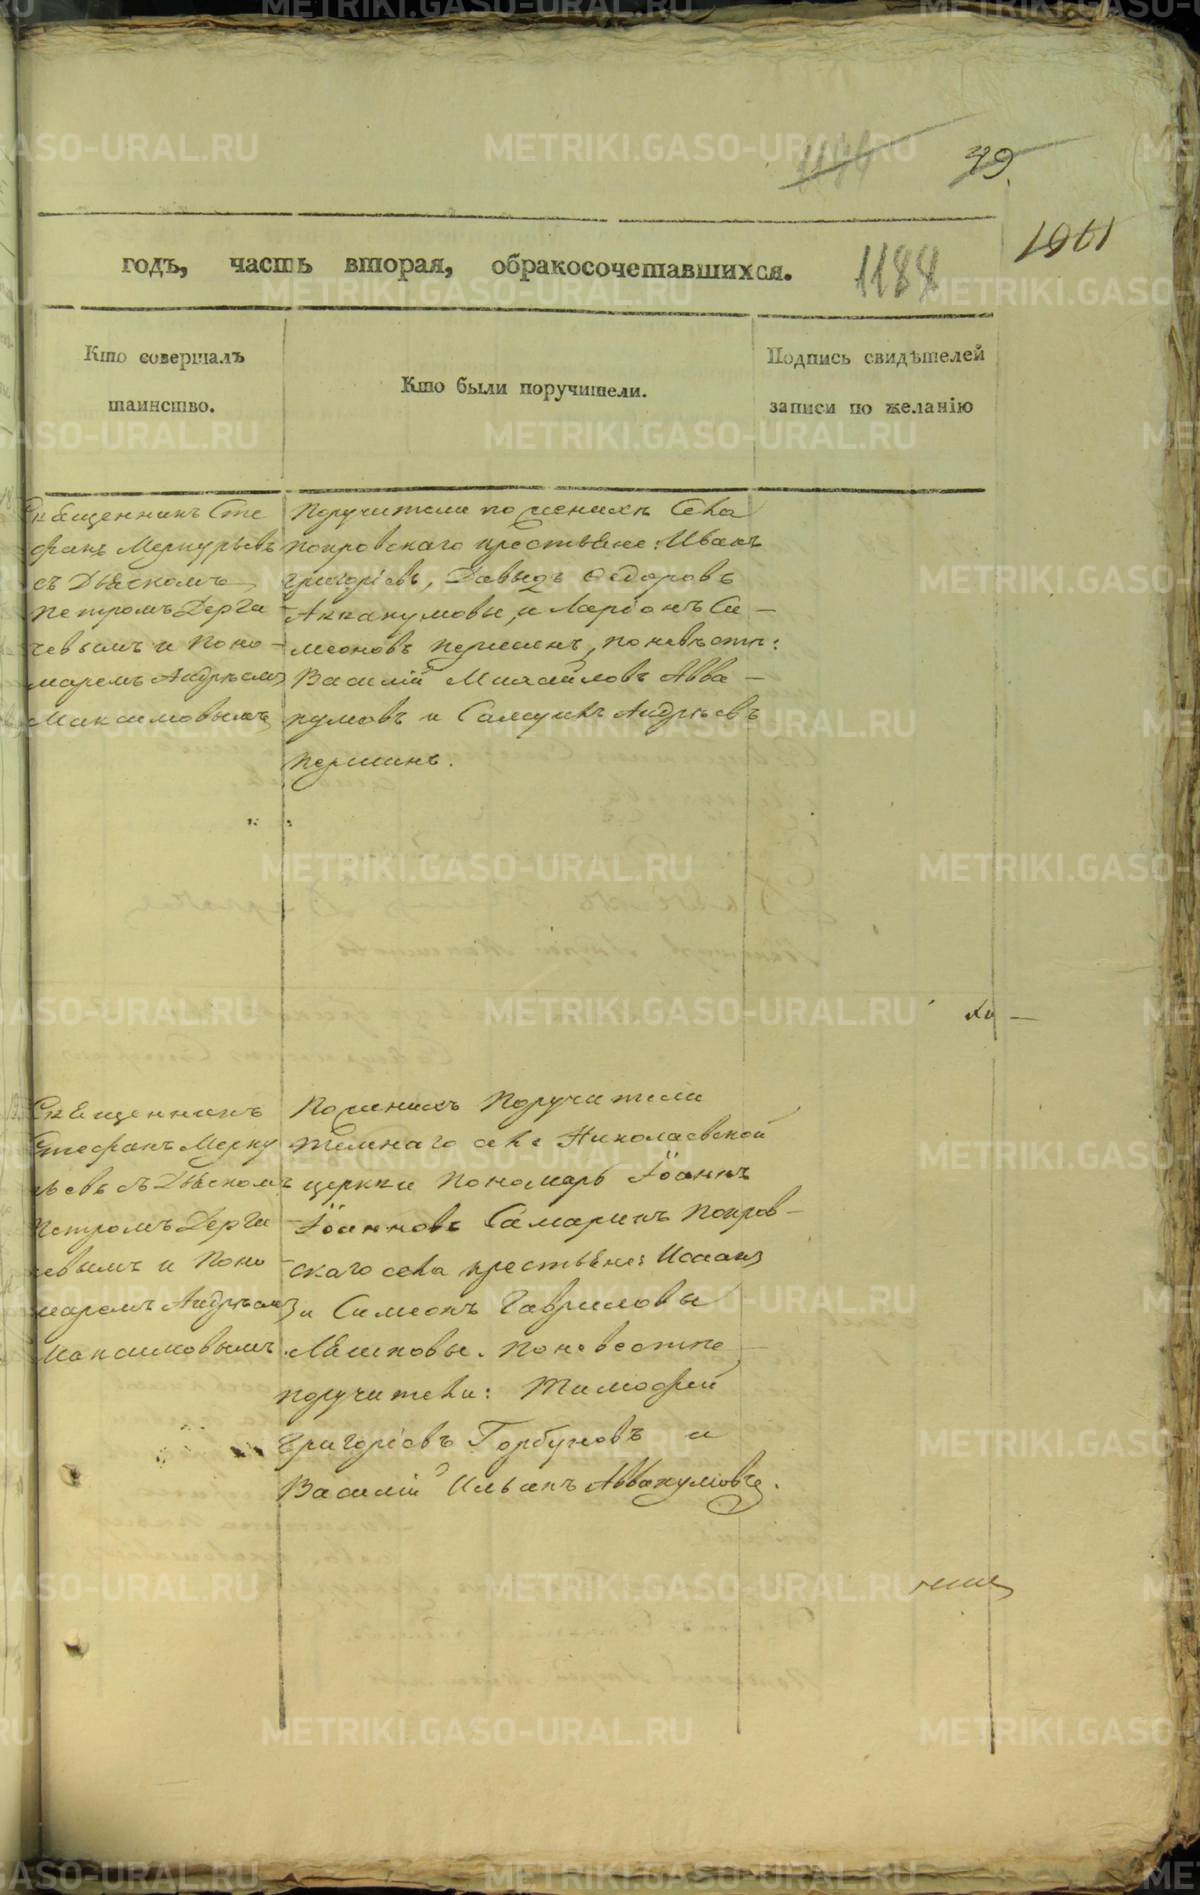 49.
1961
годъ, часть вторая, обракосочетавшихся.
1188
Кто совершалъ
таинство.
Кто были поручители.
Подпись свидѣтелей
записи по желанію
Священникъ Сте
фанъ Меркурьевъ
съ Дьякономъ
Петромъ Дерга
чевымъ и Поно-
маремъ Андреемъ
Максимовымъ
Поручители по женихѣ Села
покровскаго крестьяне: Иванъ
Григорiевъ, Давыдъ Ѳедоровъ
Аввакумовы, и Ларiонъ Си-
меоновъ Першинъ, по невѣстѣ:
Василiй Михайловъ Авва-
кумовъ и Самуилъ Андреевъ
Першинъ.
Священникъ
Стефанъ Мерку
рьевъ съ Дьякономъ
Петромъ Дерга
чевымъ и Поно-
маремъ Андреемъ
Максимовымъ
По женихѣ Поручители
села Николаевской
церкви Пономарь Iоаннъ
Iоанновъ Самаринъ Покров-
скаго села крестьяне: Исаакъ
и Симеонъ Гавриловы
по невестѣ
поручители: Тимофей
Григорiевъ Горбуновъ и
Василiй Аввакумовъ.